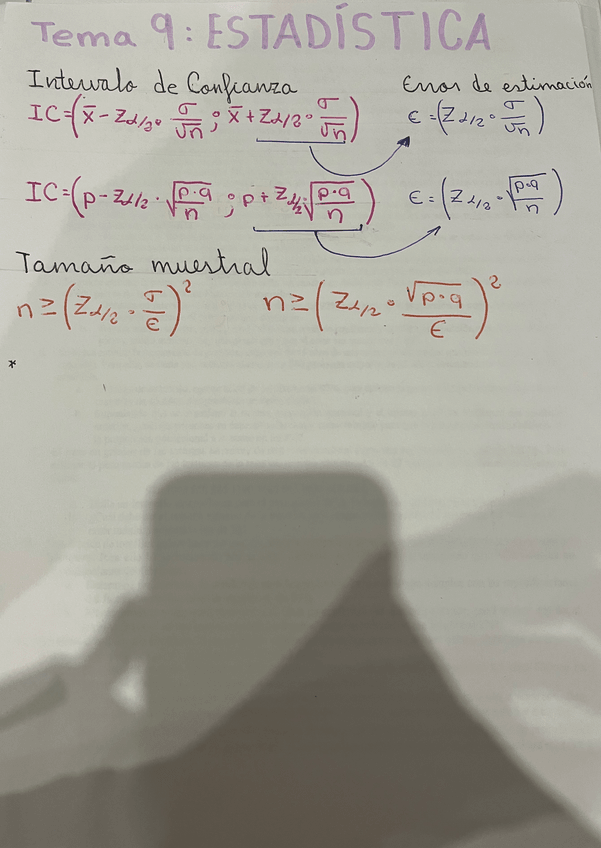 Tema 9: ESTADÍSTICA
Intervalo de Confianza
Error de estimación
IC=(x̄-Zα/2·σ/√n; x̄+Zα/2·σ/√n)
ε=(Zα/2·σ/√n)
IC=(p-Zα/2·√(p·q/n); p+Zα/2·√(p·q/n))
ε=(Zα/2·√(p·q/n))
Tamaño muestral
n≥(Zα/2·σ/ε)²
n≥(Zα/2·√(p·q)/ε)²
*